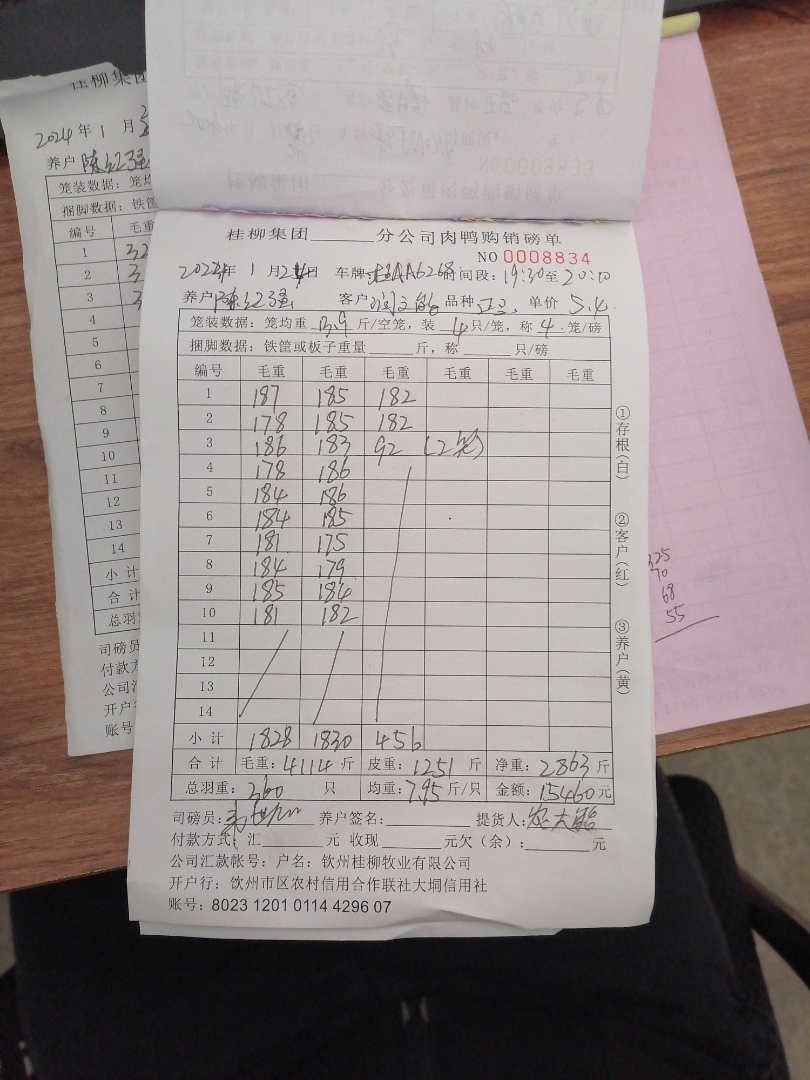 桂柳集团
2024年 1 月
养户 陈红强
笼装数据：笼均
捆脚数据：铁筐
编号 毛重
1
2
3
4
5
6
7
8
9
10
11
12
13
14
小 计
合 计
总羽重
司磅员
付款方
公司汇
开户行
账号
桂柳集团______分公司肉鸭购销磅单
NO 0008834
2024年 1 月 24日 车牌 桂AA6268 时间段：19:30至20:10
养户 陈红强 客户 品种 单价 5.4
笼装数据：笼均重 13.9 斤/空笼，装 4 只/笼，称 4 笼/磅
捆脚数据：铁筐或板子重量______斤，称______只/磅
编号 毛重 毛重 毛重 毛重 毛重 毛重
1 187 185 182
2 178 185 182
3 186 183 92 (2笼)
4 178 186
5 184 186
6 184 185
7 181 175
8 184 179
9 185 184
10 181 182
11
12
13
14
小 计 1828 1830 456
合 计 毛重：4114 斤 皮重：1251 斤 净重：2863 斤
总羽重：360 只 均重：7.95 斤/只 金额：15460 元
司磅员： 养户签名：______ 提货人：
付款方式：汇______元 收现______元欠（余）：______元
公司汇款帐号：户名：钦州桂柳牧业有限公司
开户行：饮州市区农村信用合作联社大垌信用社
账号：8023 1201 0114 4296 07
①存根（白）
②客户（红）
③养户（黄）
325
70
68
55
NO 0008833